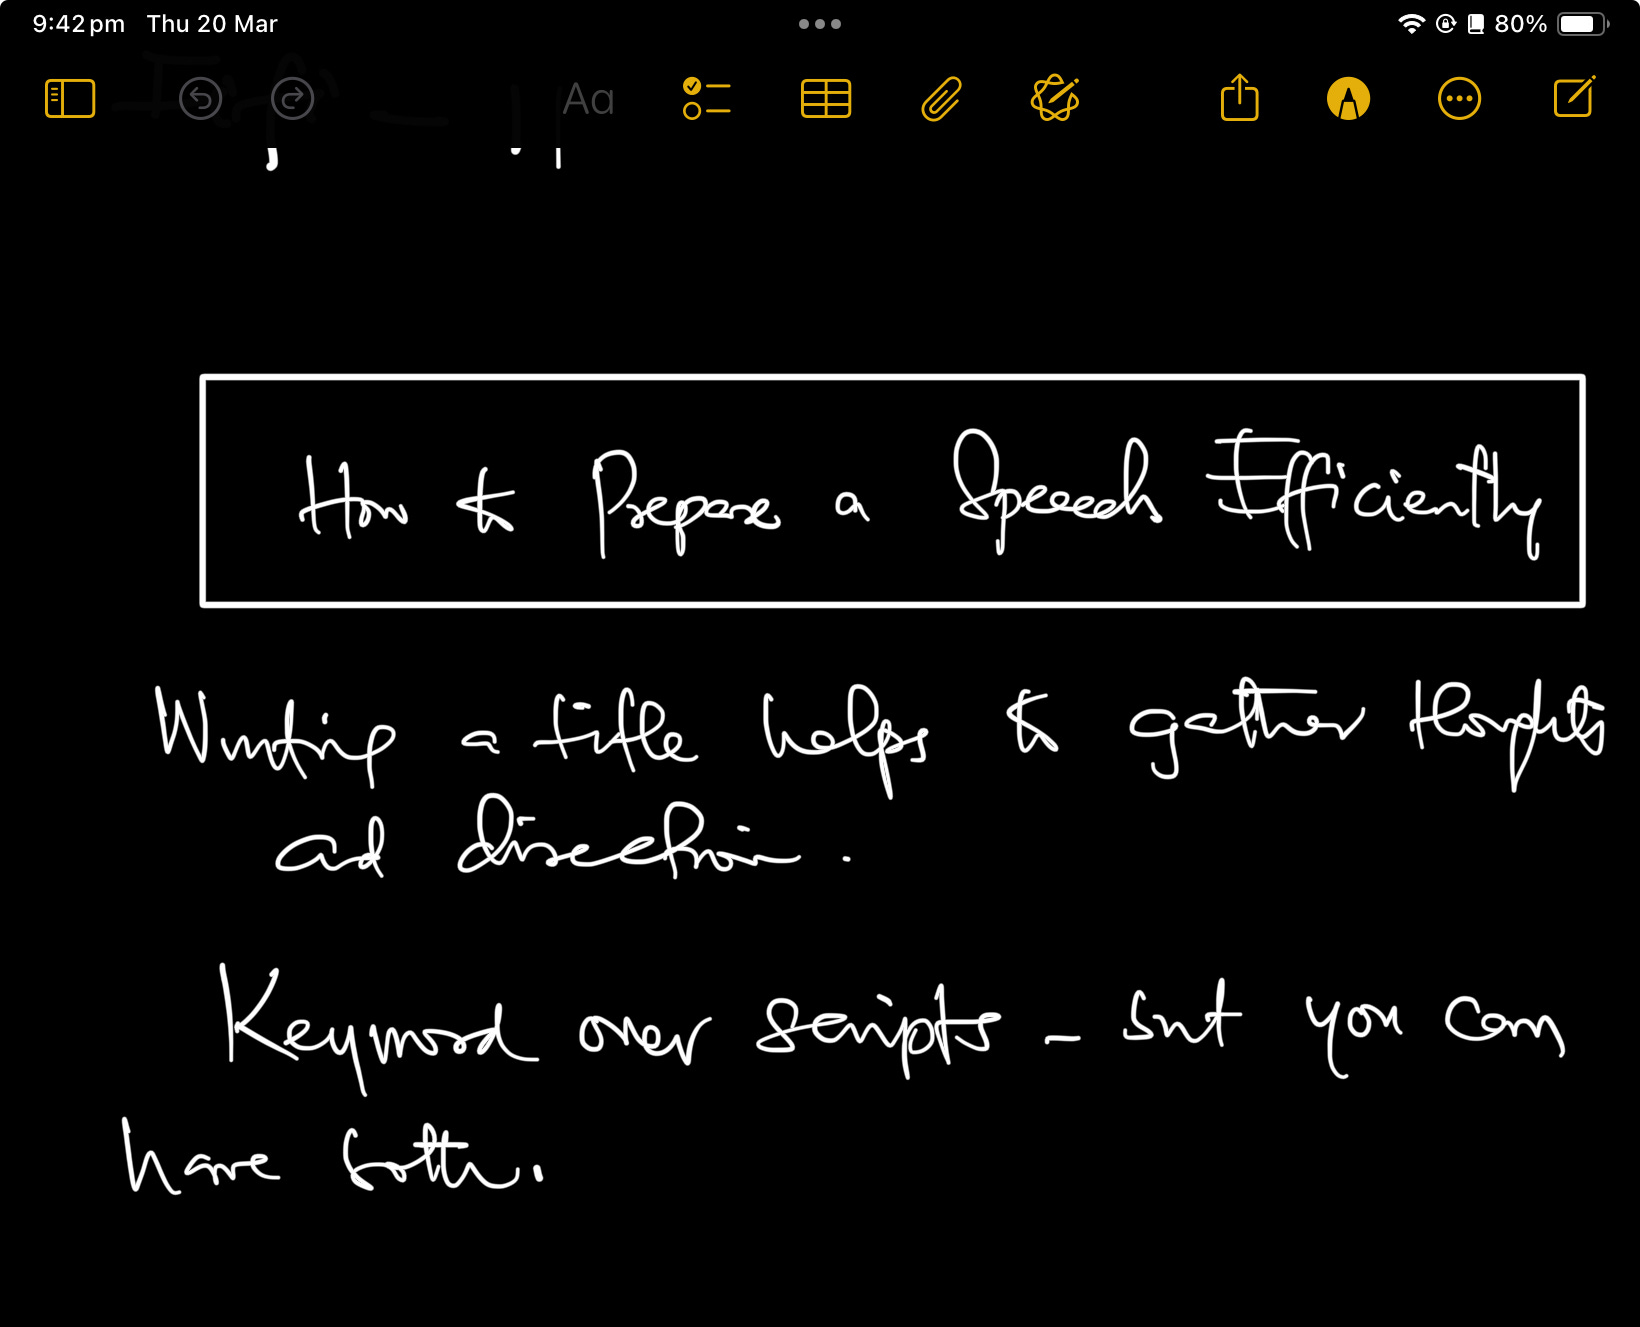 9:42 pm Thu 20 Mar 80%
Aa
How to Prepare a Speech Efficiently
Writing a title helps to gather thoughts
ad direction.
Keyword over scripts - but you can
have both.